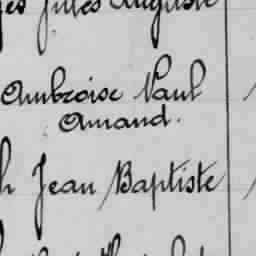 es Jules Auguste
Ambroise Paul
Amand.
h Jean Baptiste